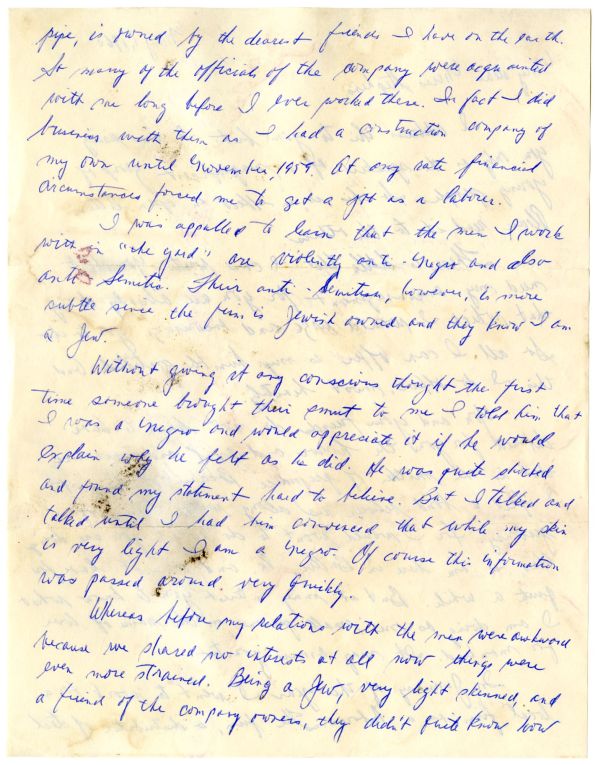 pipe, is owned by the dearest friends I have on the earth.
So many of the officials of the company were acquainted
with me long before I ever worked there. In fact I did
business with them as I had a construction company of
my own until November, 1959. At any rate financial
circumstances forced me to get a job as a laborer.
I was appalled to learn that the men I work
with in "the yard" are violently anti-Negro and also
anti Semitic. Their anti-Semitism, however, is more
subtle since the firm is Jewish owned and they know I am
a Jew.
Without giving it any conscious thought the first
time someone brought their smut to me I told him that
I was a Negro and would appreciate it if he would
explain why he felt as he did. He was quite shocked
and found my statement hard to believe. But I talked and
talked until I had him convinced that while my skin
is very light I am a Negro. Of course this information
was passed around very quickly.
Whereas before my relations with the men were awkward
because we shared no interests at all now things were
even more strained. Being a Jew, very light skinned, and
a friend of the company owners, they didn't quite know how